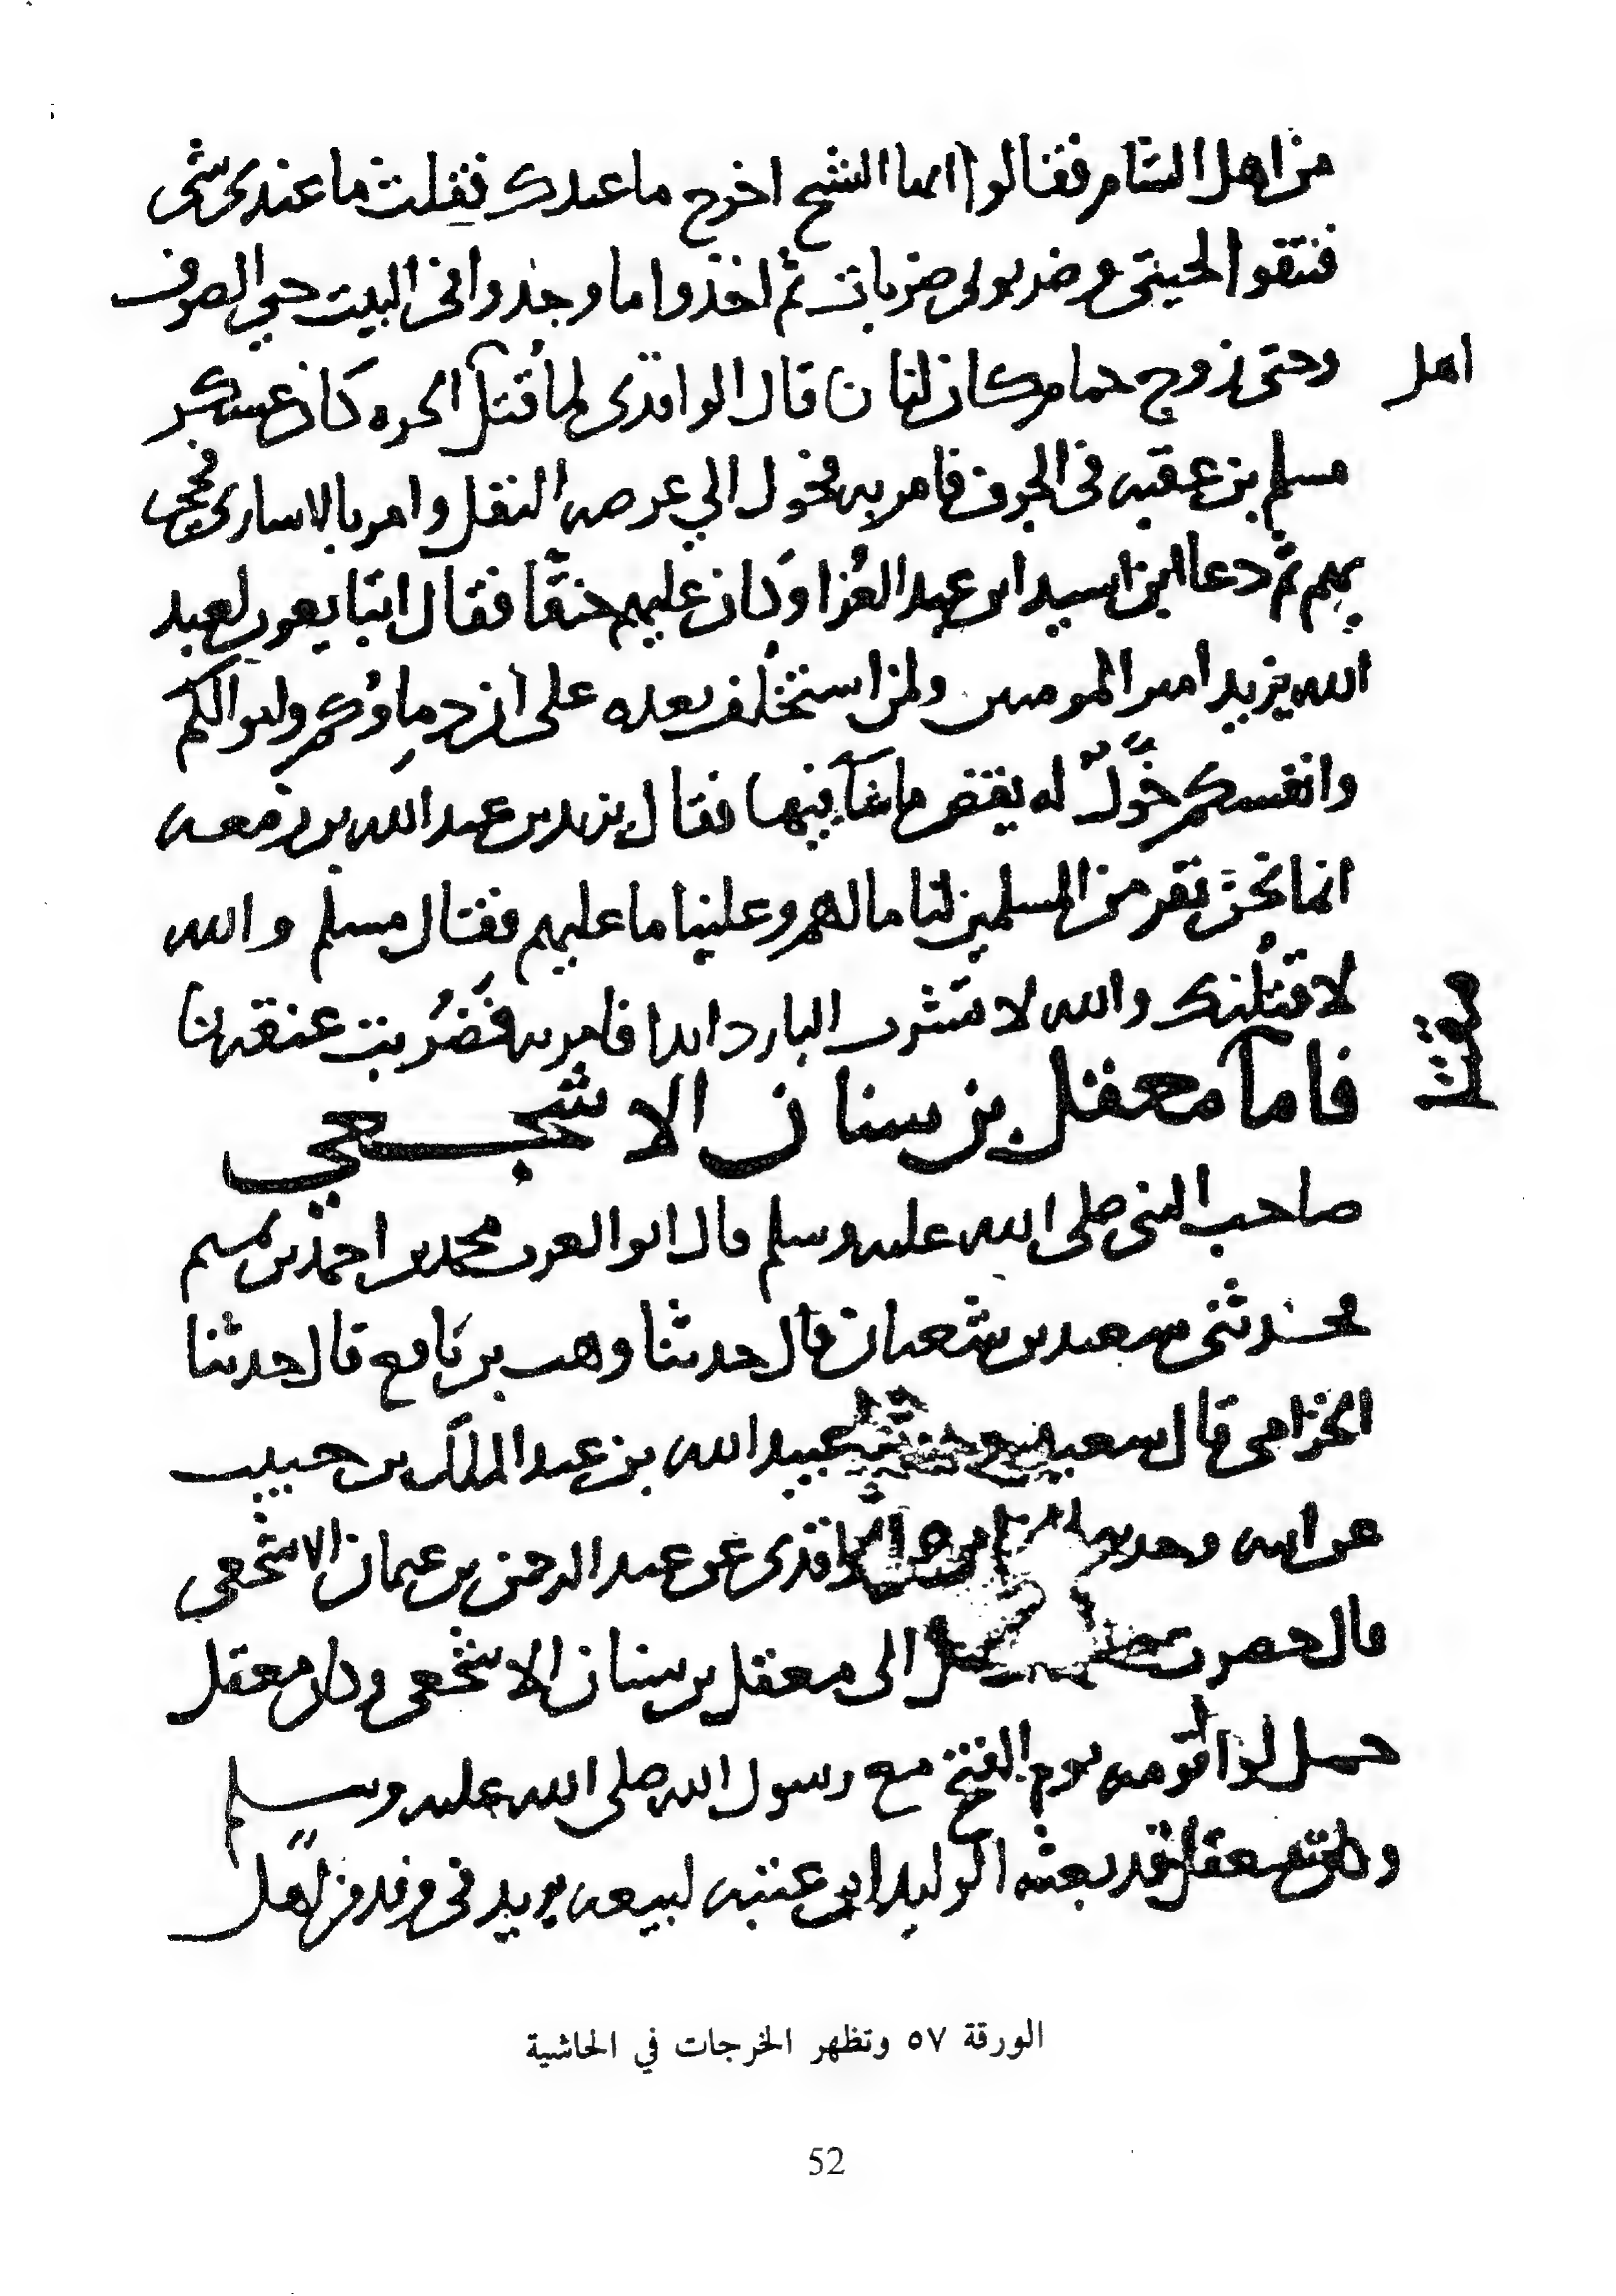 من اهل الشام فقالوا ايها الشيخ اخرج ما عندك فقلت ما عندي شي
فنتفوا لحيتي وضربوني ضربات ثم اخذوا ما وجدوا في البيت حتي الصوف
وحتى زوج حمام كان لنا ن قال الواقدى لما قُتل الحره كان عسكر
اهل
مسلم بن عقبه في الجرف فامر به فحول الي عرصه النفل وامر بالاسارى
بهم ثم دعا ابن اسيد ابن عبد العُزا وكان عليهم حنقًا فقال اتبايعون لعبد
الله يزيد امير المومنين ولمن استُخلف بعده على ان دماوكم واموالكم
وانفسكم خَوَلٌ له يقضي ما شآ فيها فقال يزيد بن عبد الله بن زمعه
انما نحن نفر من المسلمين لنا ما لهم وعلينا ما عليهم فقال مسلم والله
لاقتُلنك والله لا تشرب البارد ابدا فامر به فضُربت عنقه
فامآ معقل بن سنان الاشجعي
صاحب النبي صلى الله عليه وسلم قال ابو العرب محمد بن احمد بن تميم
حدثنى سعيد بن شعبان قال حدثنا وهب بن نافع قال حدثنا
الخزامى قال سعيد عبيد الله بن عبد الملك بن حبيب
عن ابيه الواقدى عن عبد الرحمن بن عثمان الاشجعي
قال الى معقل بن سنان الاشجعى وكان معقل
حمل لوا قومه يوم الفتح مع رسول الله صلى الله عليه وسلم
وكان معقل قد بعثه الوليد ابن عتبه لبيعه يزيد في وفد من اهل
الورقة ٥٧ وتظهر الخرجات في الحاشية
52